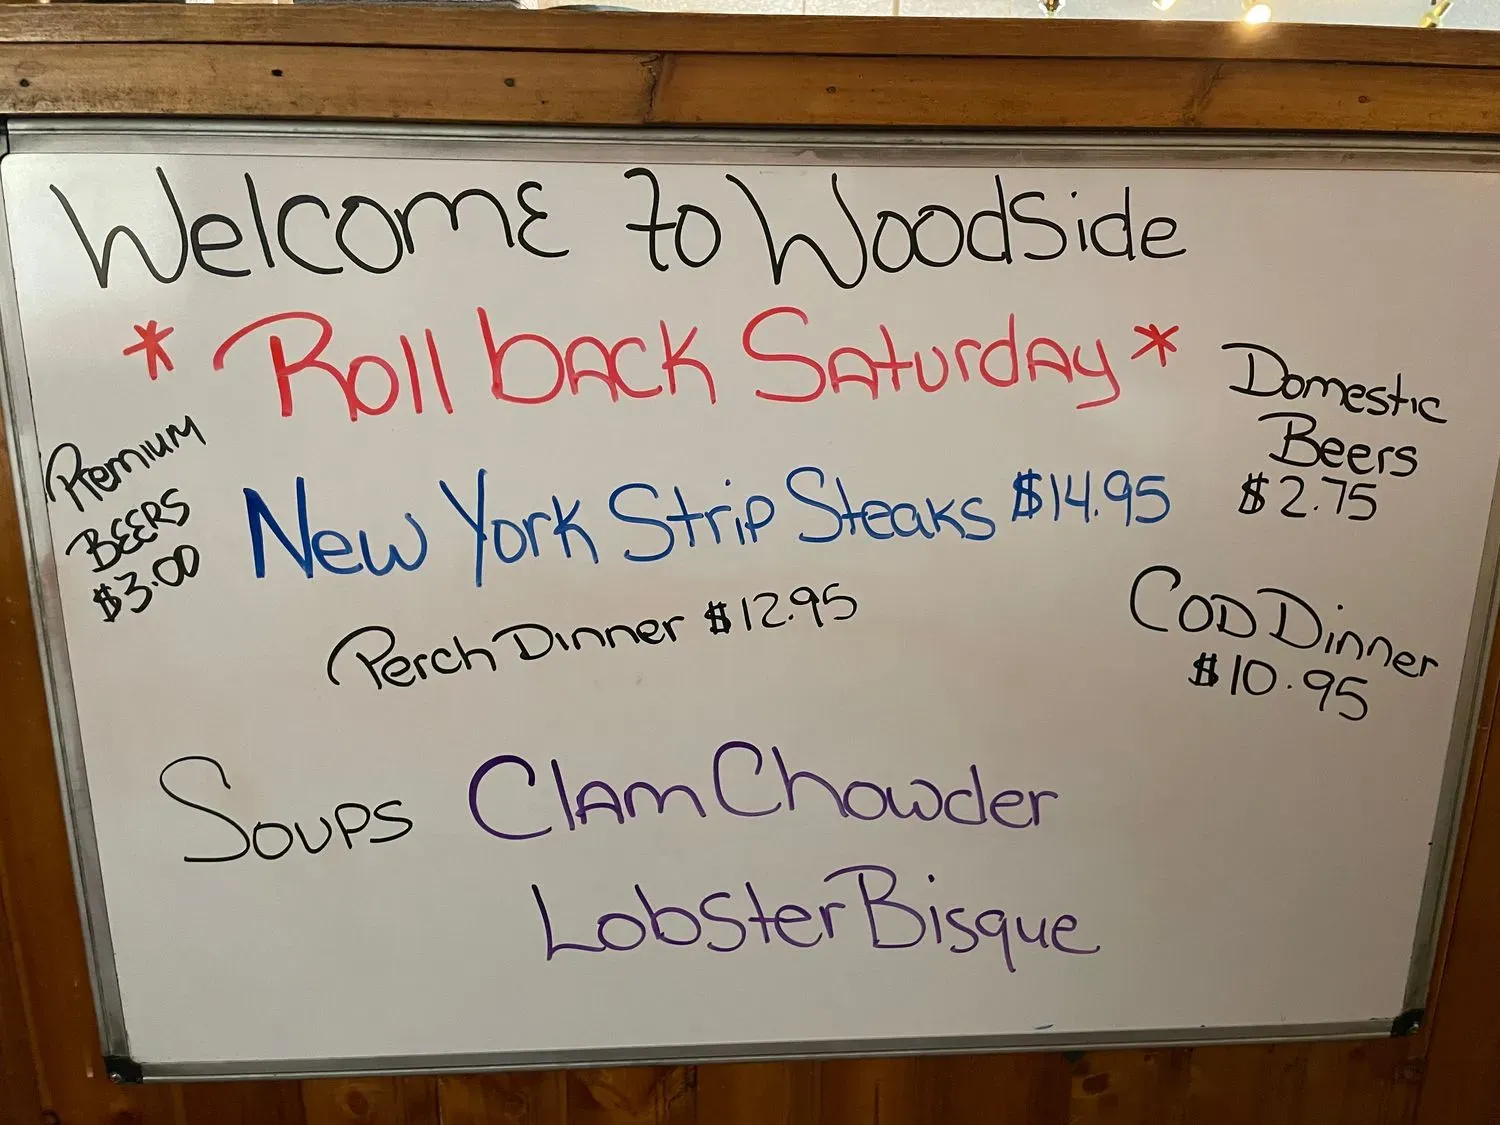 Welcome to Woodside
* Roll back Saturday *
Premium
BEERS
$3.00
Domestic
Beers
$2.75
New York Strip Steaks $14.95
Perch Dinner $12.95
COD Dinner
$10.95
Soups Clam Chowder
Lobster Bisque